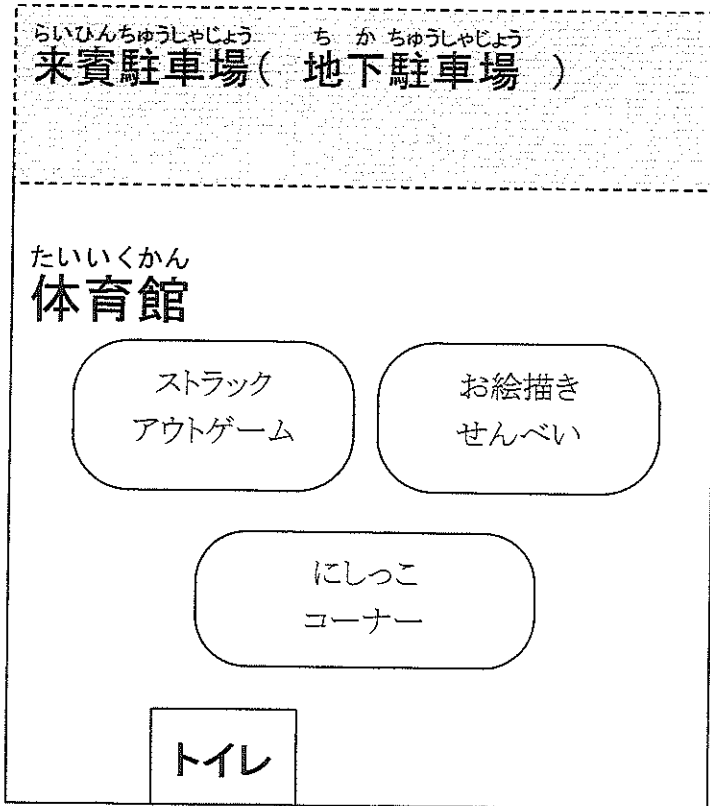 らいひんちゅうしゃじょう ちかちゅうしゃじょう
来賓駐車場( 地下駐車場 )
たいいくかん
体育館
ストラック
アウトゲーム
お絵描き
せんべい
にしっこ
コーナー
トイレ